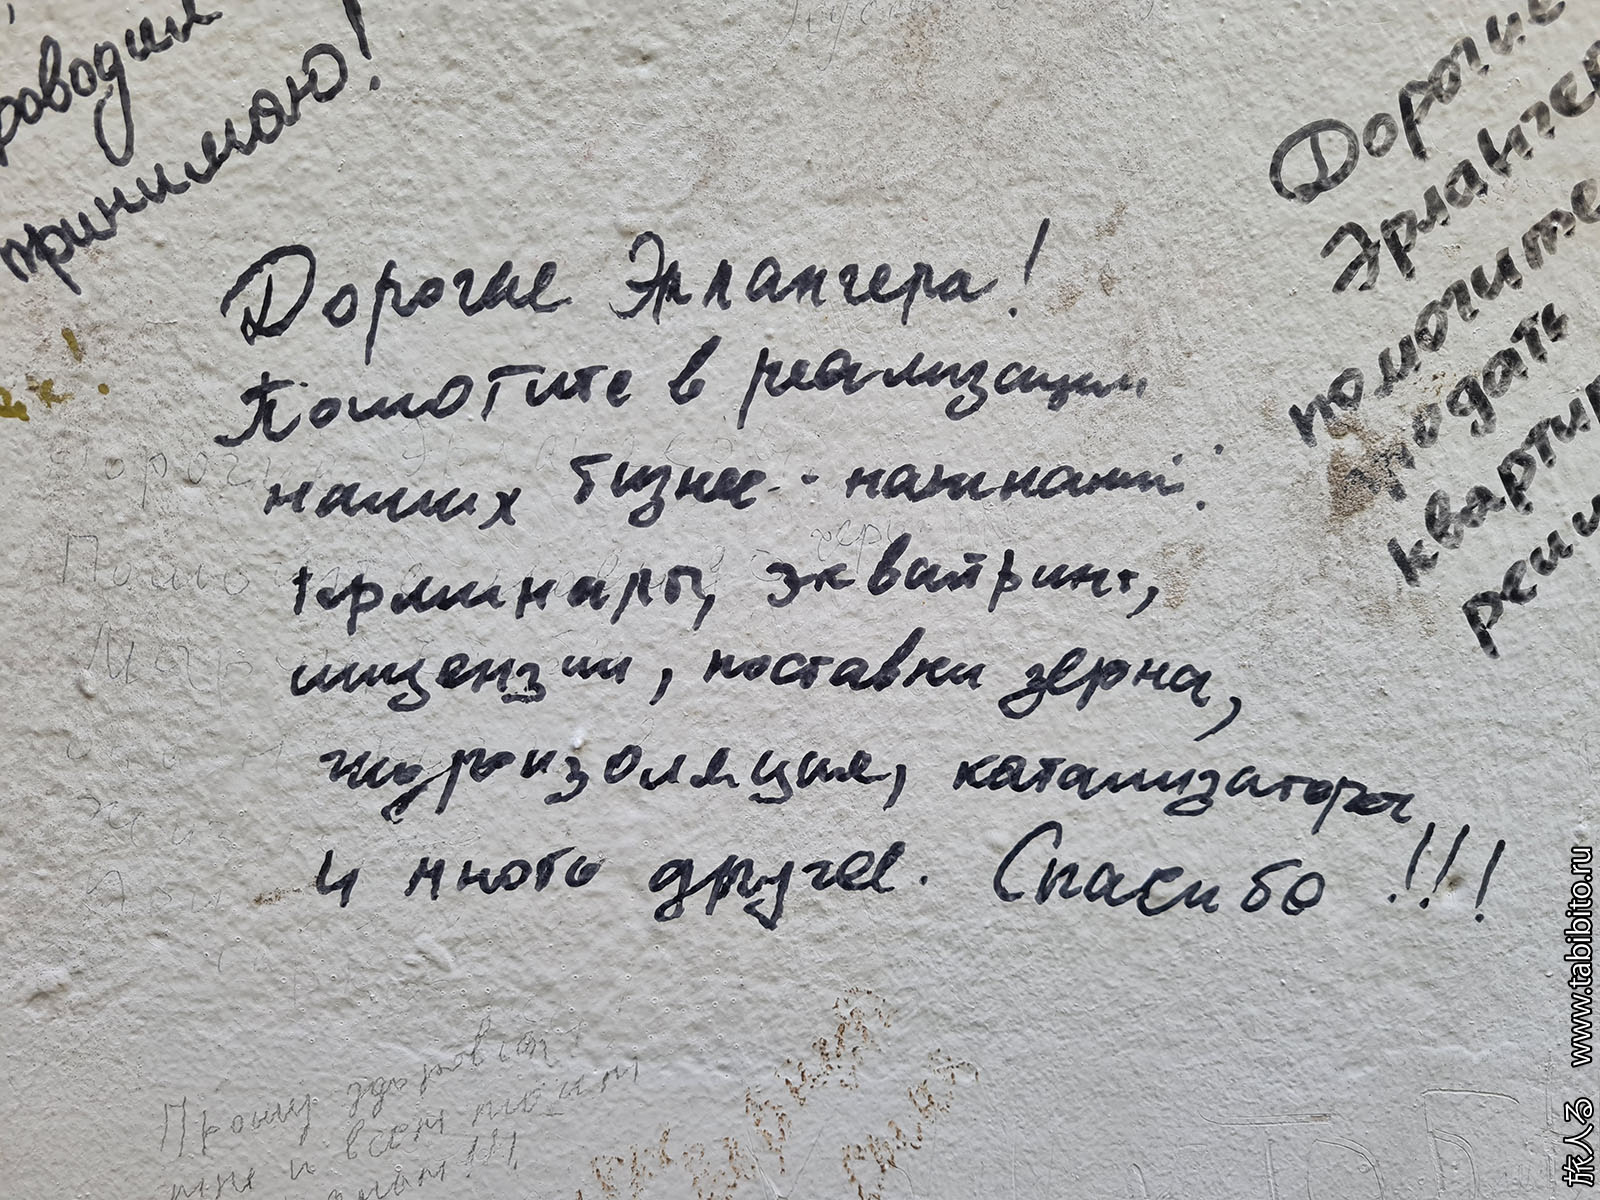 роводил
принимаю!
Дорогие Эрлангера!
Помогите в реализации
наших бизнес-начинаний:
терминалы, эквайринг,
лицензии, поставки зерна,
гидроизоляция, катализаторы
и много другое. Спасибо!!!
Дорогие
Эрлангер
помогите
продать
квартир
реши
Прошу здоровья
мне и всем моим
www.tabibito.ru
旅人る